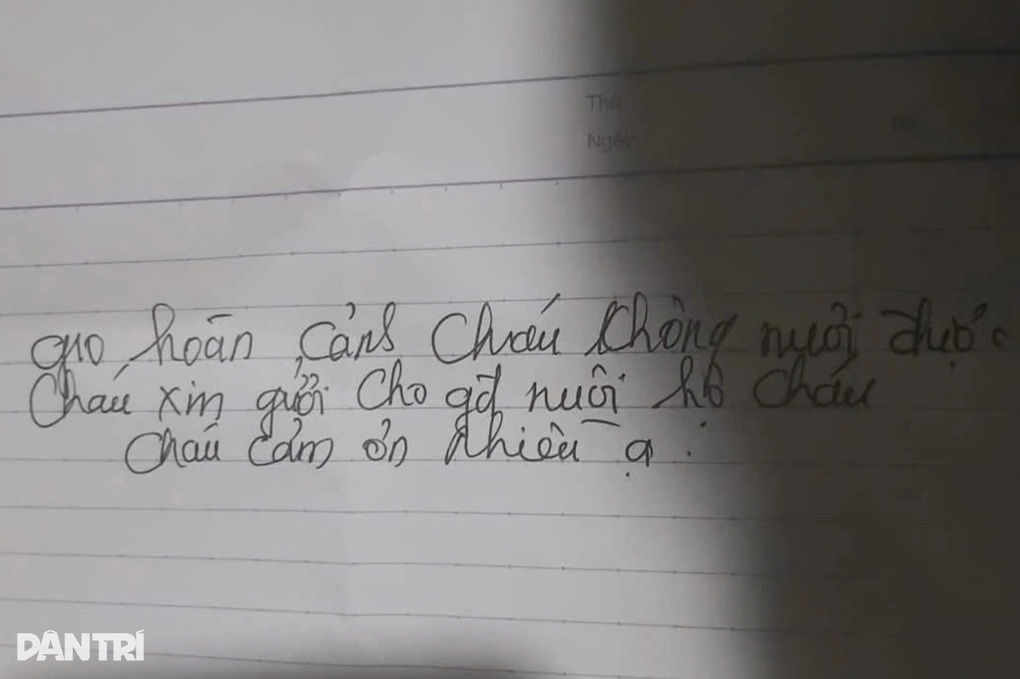 Thứ
Ngày
qua hoàn cảnh Cháu không nuôi được
Cháu xin gửi cho gđ nuôi hộ cháu
Cháu cảm ơn nhiều ạ.
DÂN TRÍ